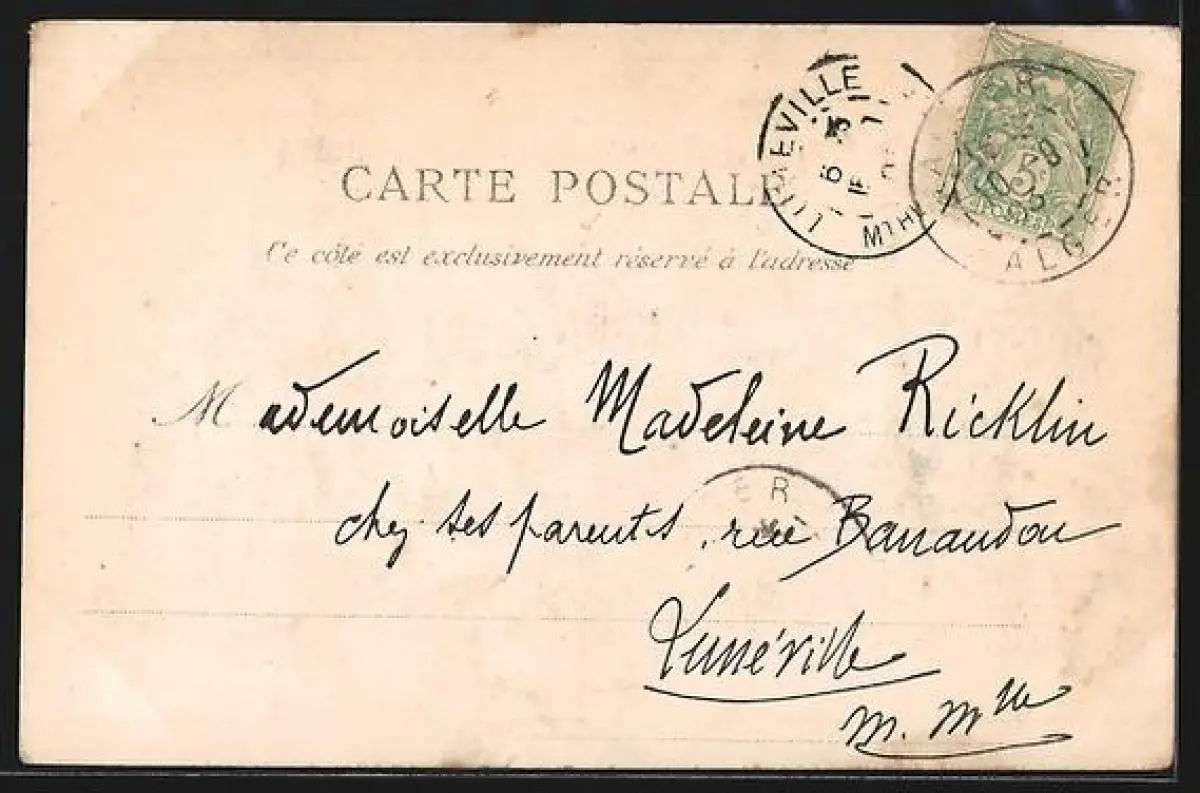 CARTE POSTALE
Ce côté est exclusivement réservé à l'adresse
LUNEVILLE
MTHE
ALGER
ALGER
5
Mademoiselle Madeleine Ricklin
chez ses parents, rue Banaudon
ER
Lunéville
M. Mlle